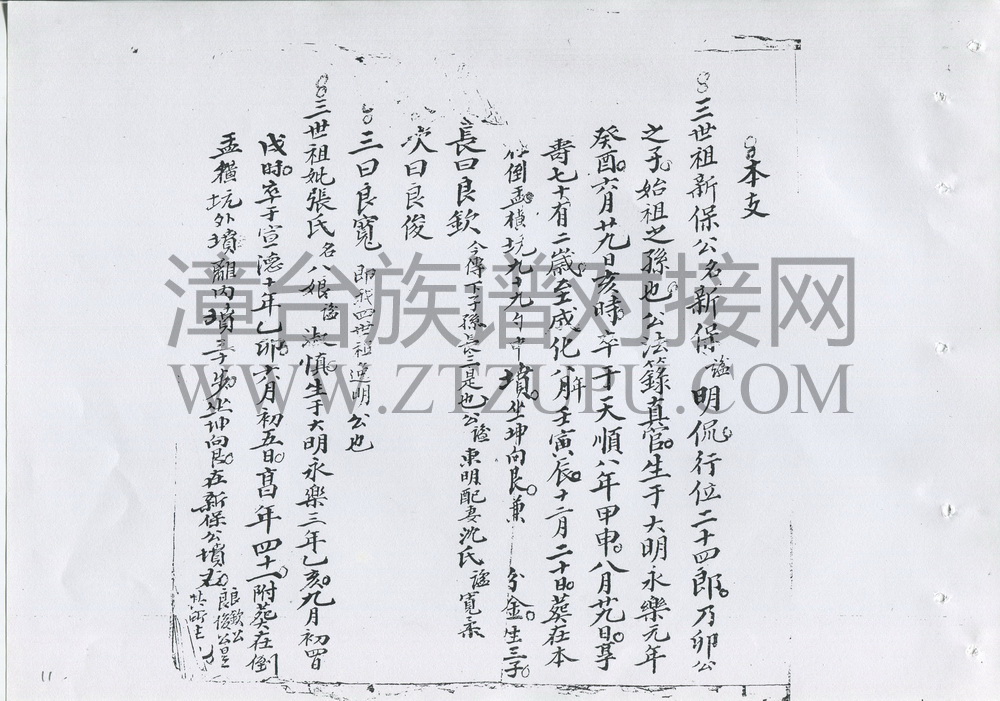 本支
三世祖新保公名新保諡明侃行位二十四郎乃卯公
之子始祖之孫也公法籙真官生于大明永樂元年
癸酉六月廿九日亥時卒于天順八年甲申八月廿九日享
壽七十有二歲至成化八年月壬寅辰十二月二十日葬在本
倒孟橫坑九十九勺中墳坐坤向艮兼 分金生三子
長曰良欽 今傳下子孫長三是也公諡東明配妻沈氏諡寬柔
次曰良俊
三曰良寬 即我四世祖進明公也
三世祖妣張氏名八娘諡淑慎生于大明永樂三年乙亥九月初四日
戌時卒于宣德十年乙卯六月初五日享年四十一附葬在倒
孟橫坑外墳離內墳三十步坐坤向艮在新保公墳右
良欽公
良俊公是
其所生
漳台族谱对接网
WWW.ZTZUPU.COM
11